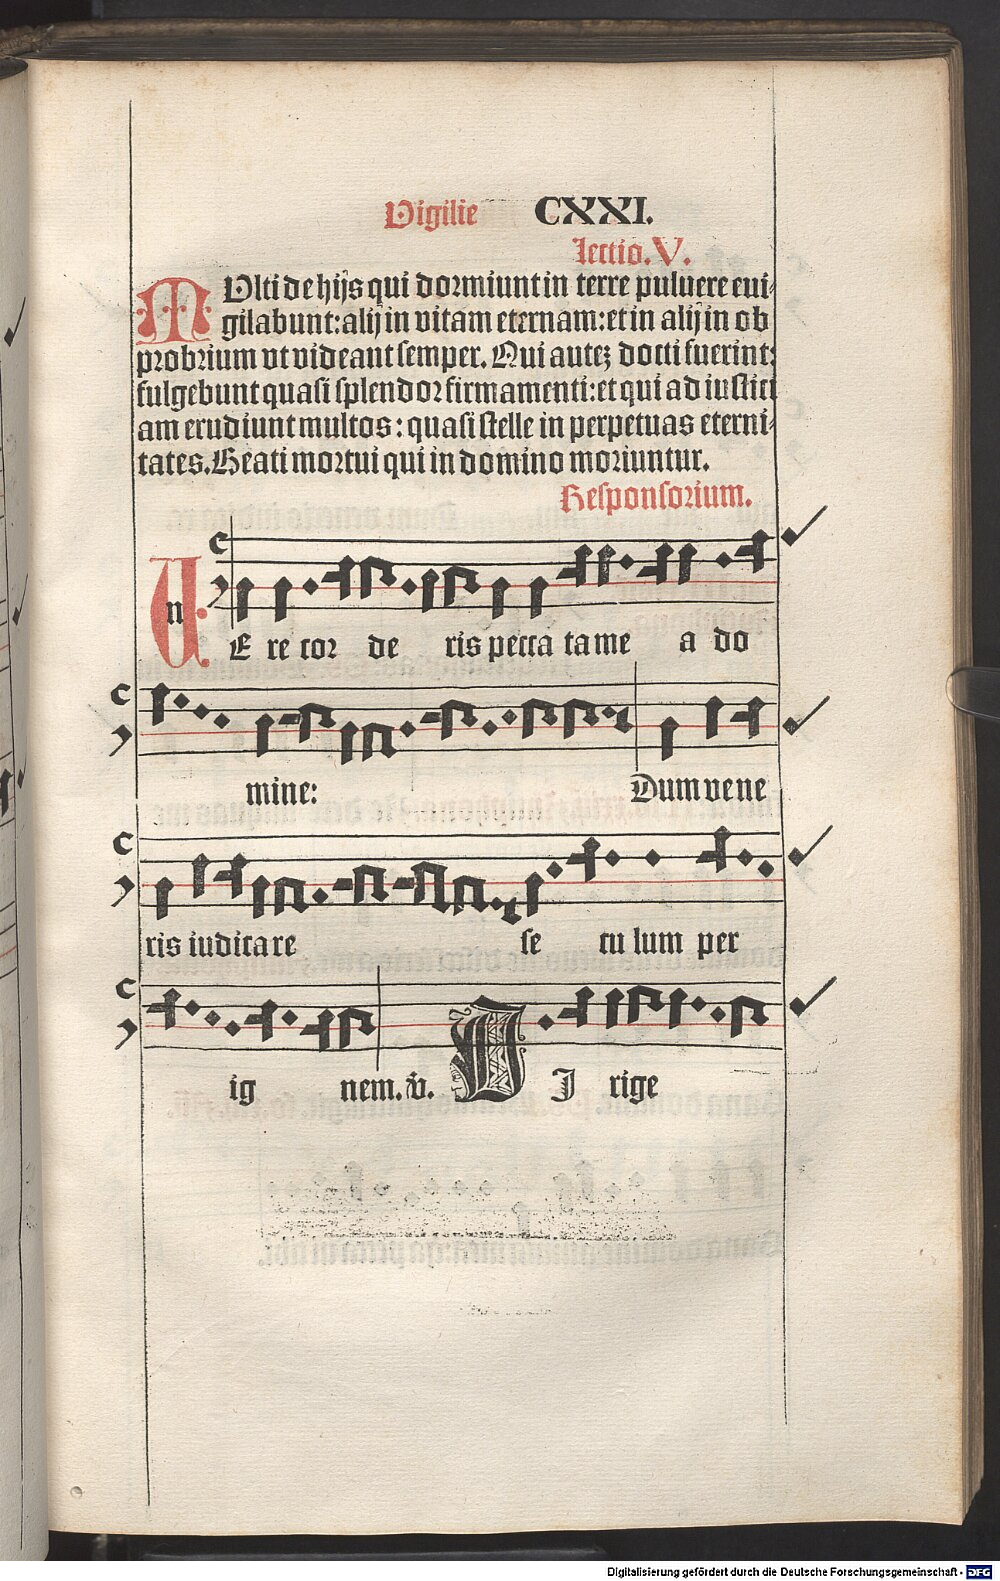 Vigilie CXXI.
lectio. V.
MUlti de hijs qui dormiunt in terre puluere eui⸗
gilabunt: alij in vitam eternam: et in alij in ob
probrium vt videant semper. Qui autez docti fuerint:
fulgebunt quasi splendor firmamenti: et qui ad iustici
am erudiunt multos: quasi stelle in perpetuas eterni⸗
tates. Beati mortui qui in domino moriuntur.
Responsorium.
c
n E re cor de ris pecca ta me a do
c
mine: Dum vene
c
ris iudicare se cu lum per
c
ig nem. v̄. D I rige
Digitalisierung gefördert durch die Deutsche Forschungsgemeinschaft - DFG